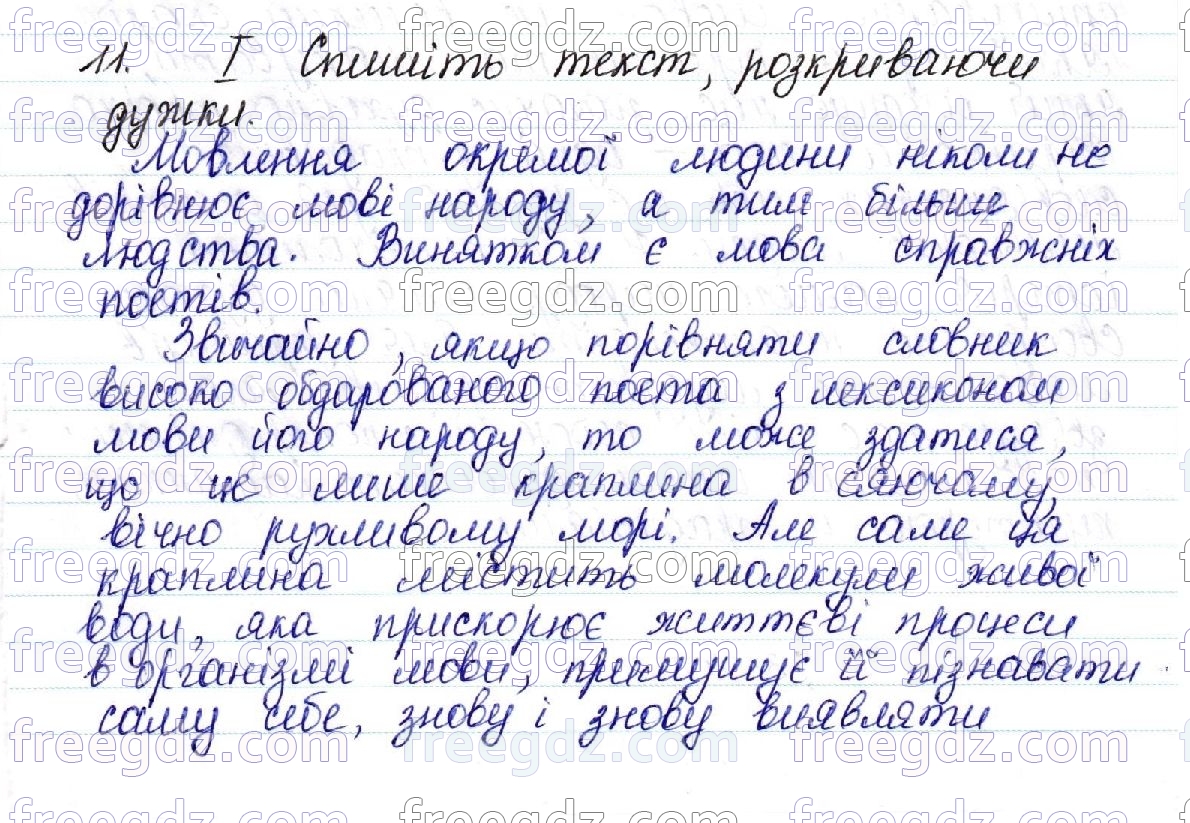 11. І Спишіть текст, розкриваючи
дужки.
Мовлення окремої людини ніколи не
дорівнює мові народу, а тим більше
людства. Винятком є мова справжніх
поетів.
Звичайно, якщо порівняти словник
високо обдарованого поета з лексиконом
мови його народу, то може здатися,
що це лише краплина в сяючому,
вічно рухливому морі. Але саме ця
краплина містить молекули живої
води, яка прискорює життєві процеси
в організмі мови, примушує її пізнавати
саму себе, знову і знову виявляти
freegdz.com